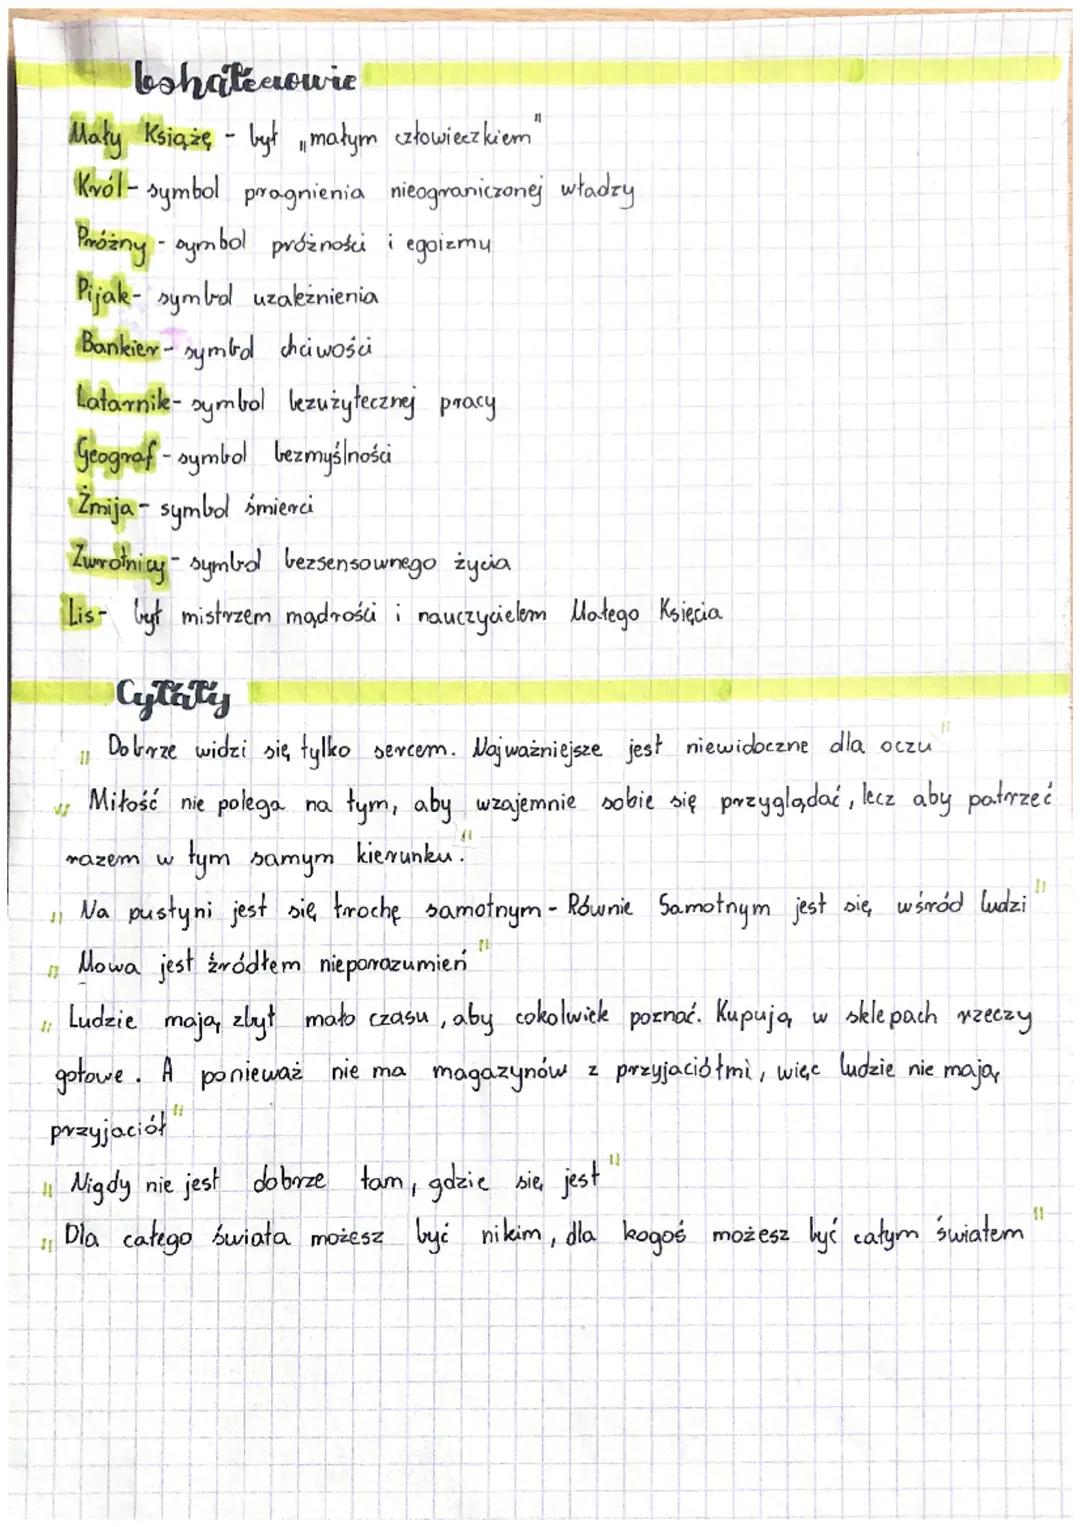 bohaterowie
Mały Książę - był „małym człowieczkiem"
Król - symbol pragnienia nieograniczonej władzy
Próżny - symbol próżności i egoizmu
Pijak - symbol uzależnienia
Bankier - symbol chciwości
Latarnik - symbol bezużytecznej pracy
Geograf - symbol bezmyślności
Żmija - symbol śmierci
Zwrotnicy - symbol bezsensownego życia
Lis - był mistrzem mądrości i nauczycielem Małego Księcia
Cytaty
„Dobrze widzi się tylko sercem. Najważniejsze jest niewidoczne dla oczu"
„Miłość nie polega na tym, aby wzajemnie sobie się przyglądać, lecz aby patrzeć
razem w tym samym kierunku."
„Na pustyni jest się trochę samotnym - Równie Samotnym jest się wśród ludzi"
„Mowa jest źródłem nieporozumień"
„Ludzie mają zbyt mało czasu, aby cokolwiek poznać. Kupują w sklepach rzeczy
gotowe. A ponieważ nie ma magazynów z przyjaciółmi, więc ludzie nie mają
przyjaciół"
„Nigdy nie jest dobrze tam, gdzie się jest"
„Dla całego świata możesz być nikim, dla kogoś możesz być całym światem"